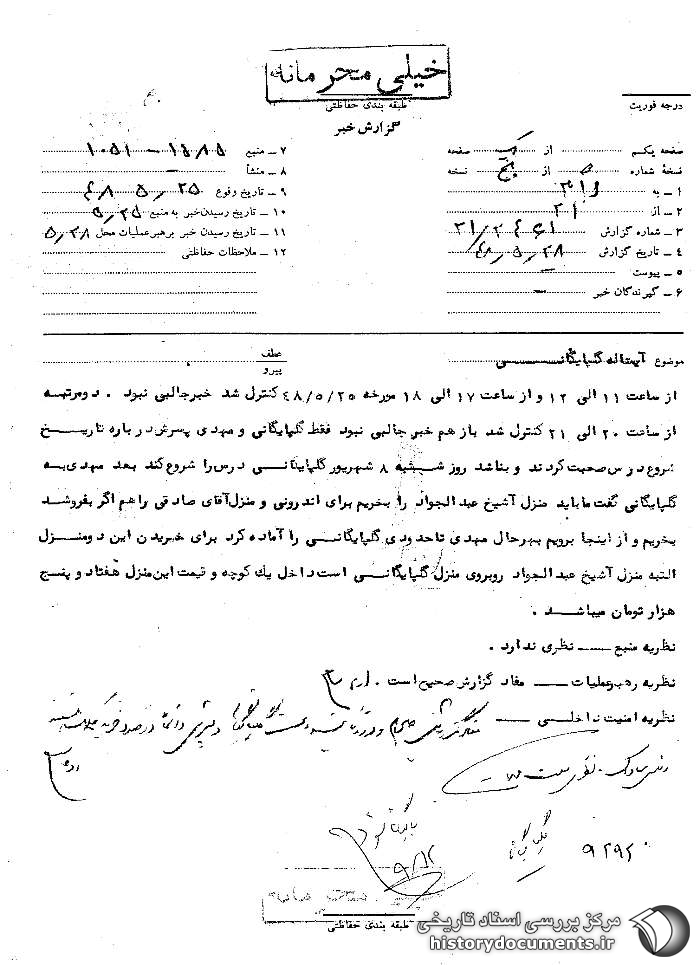 خیلی محرمانه
طبقه بندی حفاظتی
گزارش خبر
درجه فوریت
صفحه یکم از یک صفحه
نسخهٔ شماره ۵ از پنج نسخه
۱ ـ به ۳۱۶
۲ ـ از ۲۱
۳ ـ شماره گزارش ۲۱/۲۴۶۱
۴ ـ تاریخ گزارش ۴۸/۵/۲۸
۵ ـ پیوست ـ
۶ ـ گیرندگان خبر ـ
۷ ـ منبع ۱۰۵۱ ـ
۸ ـ منشأ ـ
۹ ـ تاریخ وقوع ۴۸/۵/۲۵
۱۰ ـ تاریخ رسیدن خبر به منبع ۵/۲۵
۱۱ ـ تاریخ رسیدن خبر برهبر عملیات محل ۵/۲۸
۱۲ ـ ملاحظات حفاظتی
موضوع آیت‌اله گلپایگانـــی
عطف
پیرو
از ساعت ۱۱ الی ۱۲ و از ساعت ۱۷ الی ۱۸ مورخه ۴۸/۵/۲۵ کنترل شد خبر جالبی نبود . دومرتبه
از ساعت ۲۰ الی ۲۱ کنترل شد باز هم خبر جالبی نبود فقط گلپایگانی و مهدی پسرش درباره تاریــخ
شروع درس صحبت کردند و بنا شد روز شــنبه ۸ شهریور گلپایگانــی درس را شروع کند بعد مهدی به
گلپایگانی گفت ما باید منزل آشیخ عبدالجواد را بخریم برای اندرونی و منزل آقای صادقی را هم اگر بفروشد
بخریم و از اینجا برویم بهرحال مهدی تا حدودی گلپایگانــی را آماده کرد برای خریدن این دومنــزل
البته منزل آشیخ عبدالجواد روبروی منزل گلپایگانــی است داخل یک کوچه و قیمت این منزل هفتاد و پنــج
هزار تومان میباشــد .
نظریه منبع ــــ نظری ندارد .
نظریه رهبرعملیات ــــ مفاد گزارش صحیح است .
نظریه امنیت داخلــی ــــ
گلپایگانی
۹۲۹۲۰
بایگانی شود
۹/۱۲
خیلی محرمانه
طبقه بندی حفاظتی
مرکز بررسی اسناد تاریخی
historydocuments.ir